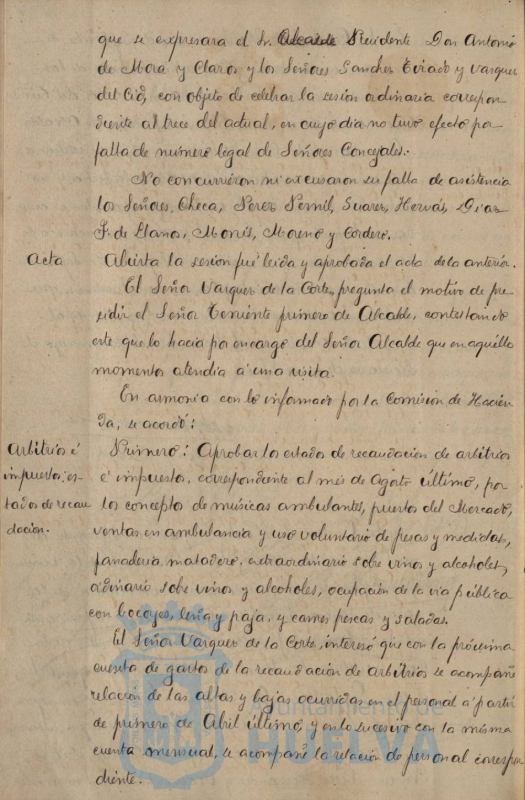 que se expresara el Sr. Alcalde Presidente Don Antonio
de Mora y Claros y los Señores Sanchez Tirado y Vazquez
del Cid, con objeto de celebrar la sesión ordinaria correspon-
diente al trece del actual, en cuyo dia no tuvo efecto por
falta de número legal de Señores Concejales.
No concurrieron ni excusaron su falta de asistencia
los Señores, Checa, Perez Pernil, Suarez, Hervás, Diaz
F. de Llanos, Monís, Moreno y Cordero.
Acta Abierta la sesión fué leida y aprobada el acta de la anterior.
El Señor Vazquez de la Corte, pregunta el motivo de pre-
sidir el Señor Teniente primero de Alcalde, contestando
este que lo hacia por encargo del Señor Alcalde que en aquellos
momentos atendia á una visita.
En armonia con lo informado por la Comision de Hacien-
da, se acordó:
Arbitrios é Primero: Aprobar los estados de recaudacion de arbitrios
impuestos: es- é impuestos, correspondiente al mes de Agosto último, por
tados de recau los concepto de músicas ambulantes, puestos del Mercado,
dación. ventas en ambulancia y uso voluntario de pesas y medidas,
panaderia, matadero, extraordinario sobre vinos y alcoholes,
ordinario sobre vinos y alcoholes, ocupación de la via pública
con bocoyes, leña y paja, y carnes frescas y saladas.
El Señor Vazquez de la Corte, interesó que con la próxima
cuenta de gastos de la recaudación de arbitrios se acompañe
relación de las altas y bajas ocurridas en el personal á partir
de primero de Abril último, y en lo sucesivo con la misma
cuenta mensual, se acompañe la relación de personal correspon
diente.
Ayuntamiento de
HUELVA